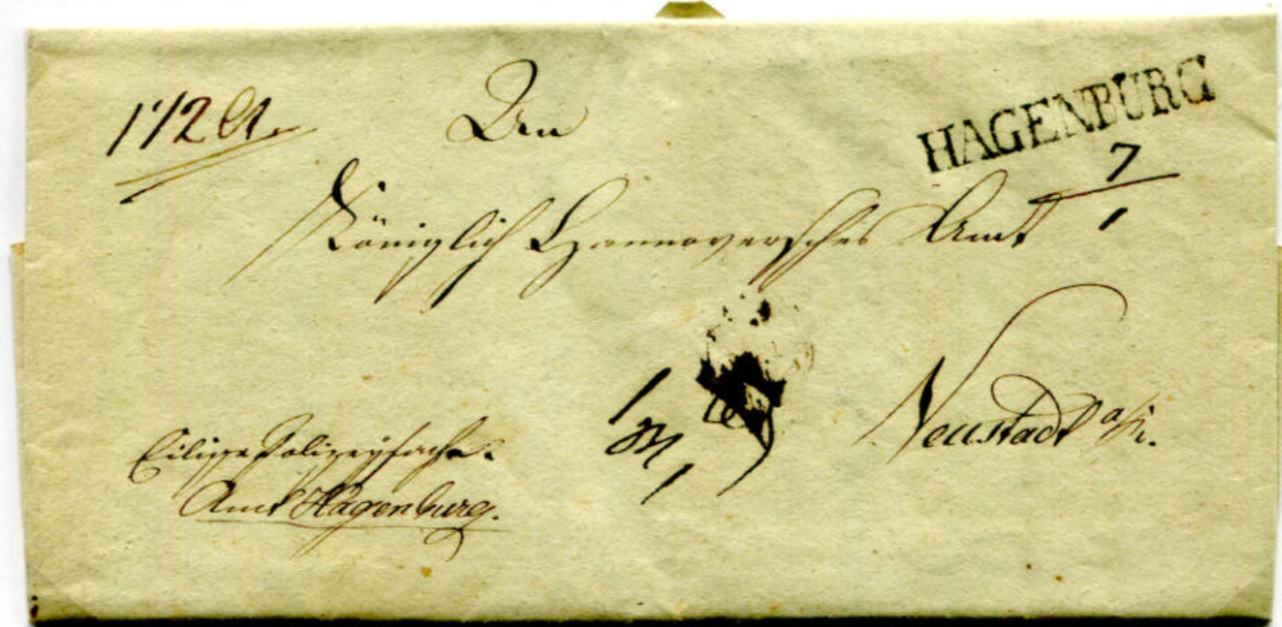 HAGENBURG
7
1
An
Königlich Hannoversches Amt
Neustadt a/R.
Eilige Polizeysache.
Amt Hagenburg.